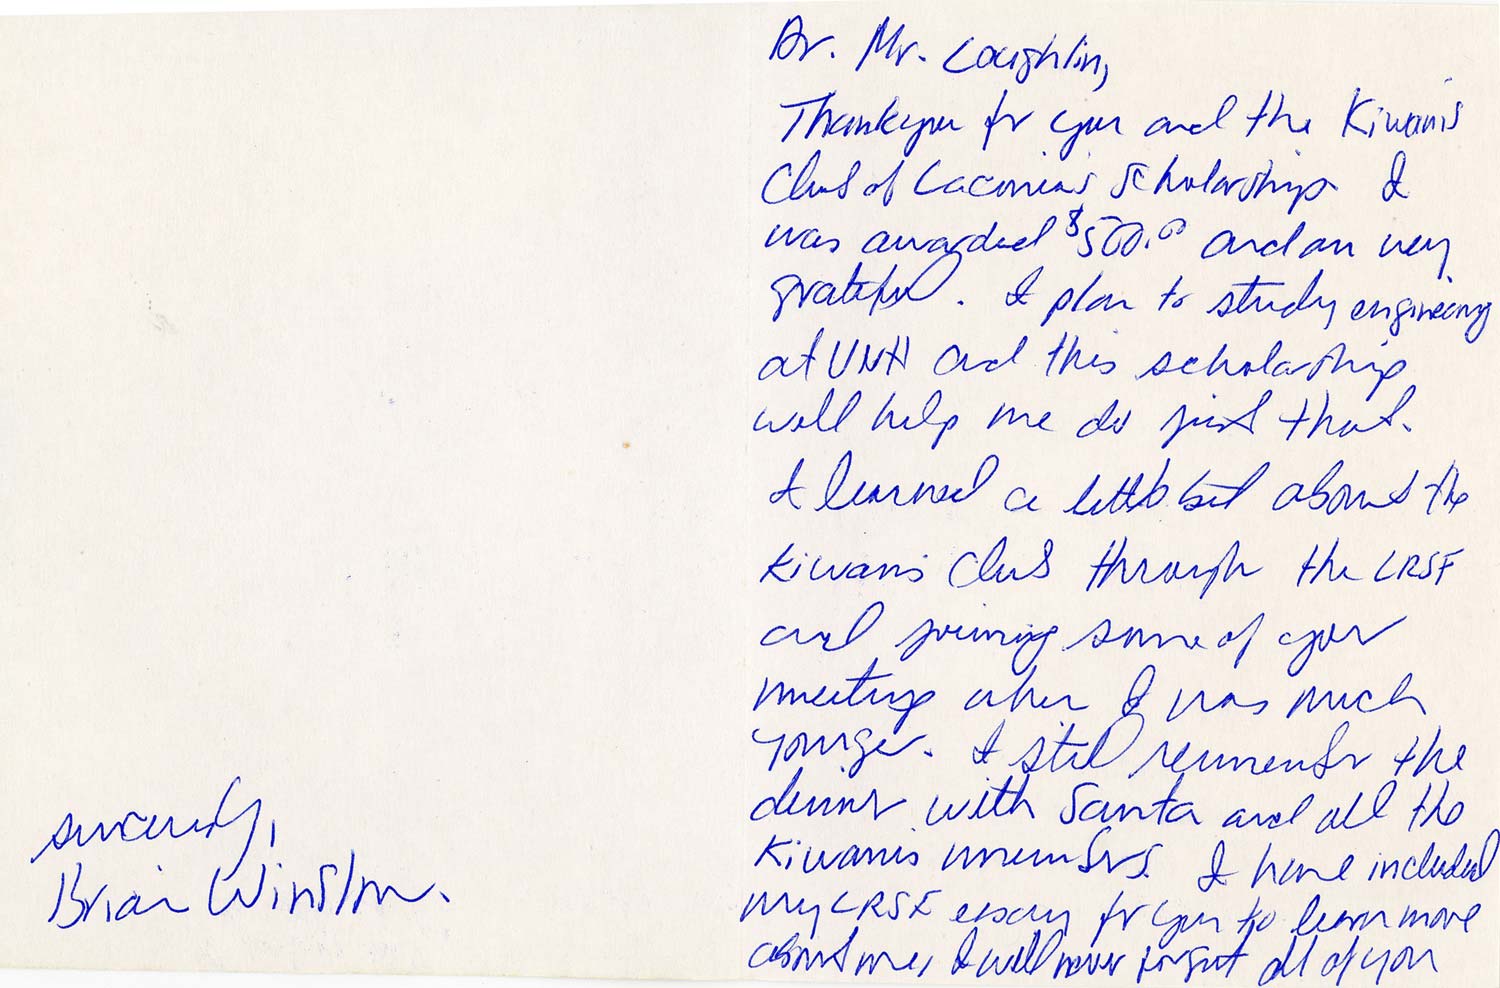 Dr. Mr. Loughlin,
Thankyou for your and the Kiwanis
Club of Laconia's scholarship I
was awarded $500.00 and am very
grateful. I plan to study engineering
at UNH and this scholarship
will help me do just that.
I learned a little bit about the
Kiwanis Club through the LRSF
and joining some of your
meetings when I was much
younger. I still remember the
dinner with Santa and all the
Kiwanis members. I have included
my LRSF essay for you to learn more
about me, I will never forget all of you
sincerely,
Brian Winston.